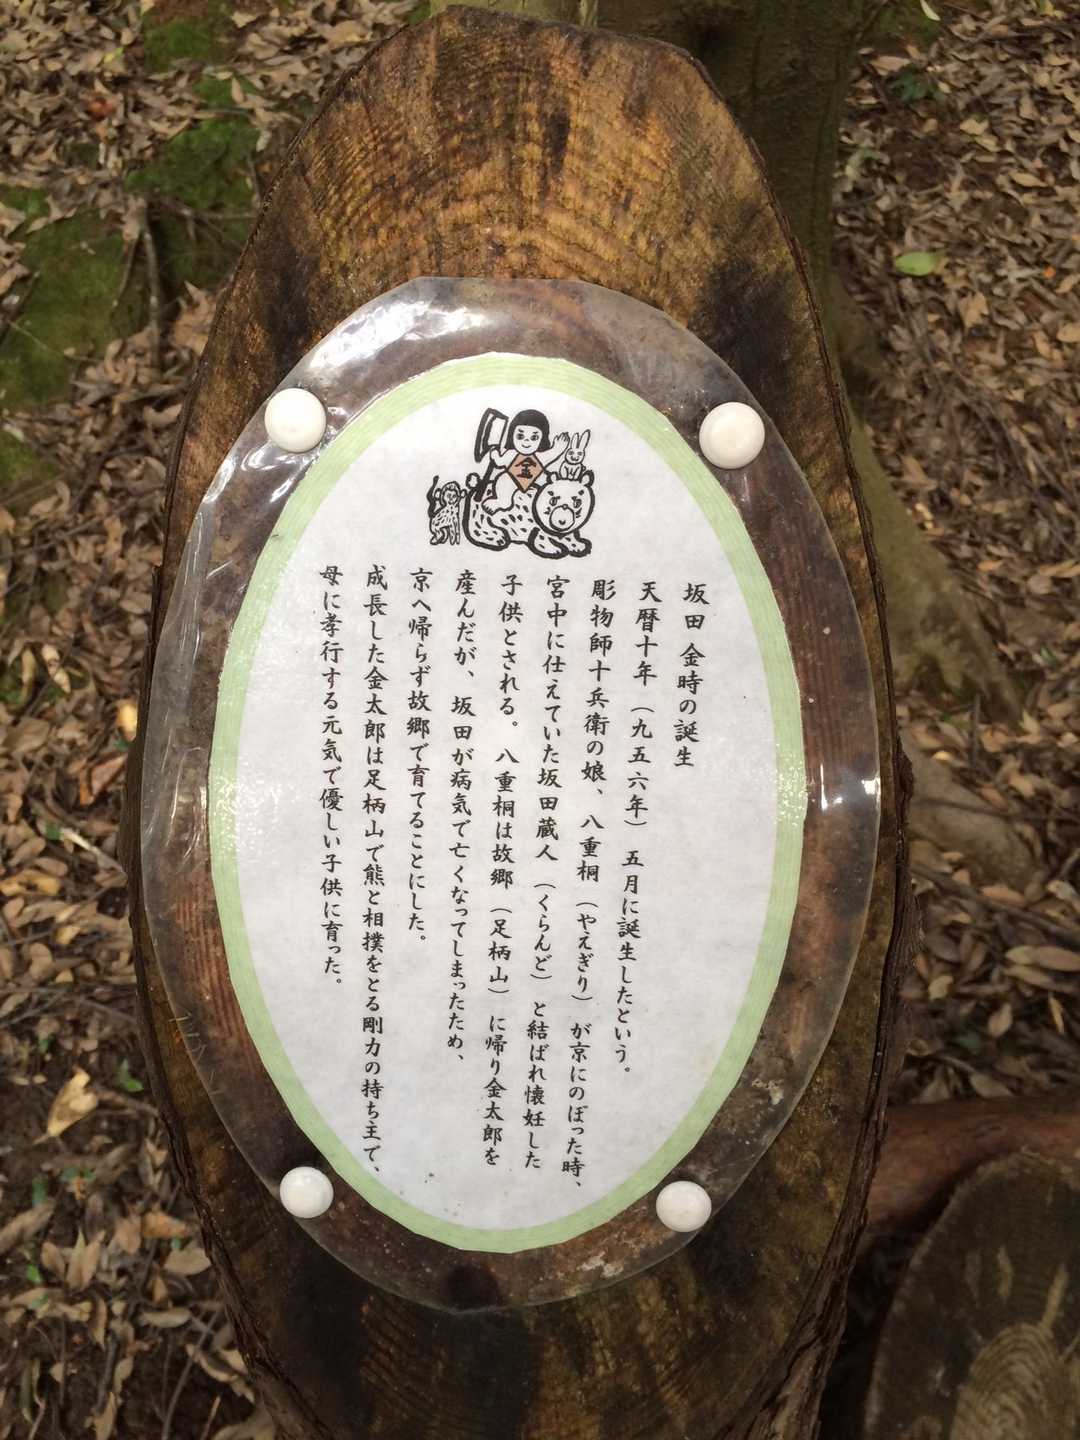 金
坂田 金時の誕生
天暦十年（九五六年）五月に誕生したという。
彫物師十兵衛の娘、八重桐（やえぎり）が京にのぼった時、
宮中に仕えていた坂田蔵人（くらんど）と結ばれ懐妊した
子供とされる。八重桐は故郷（足柄山）に帰り金太郎を
産んだが、坂田が病気で亡くなってしまったため、
京へ帰らず故郷で育てることにした。
成長した金太郎は足柄山で熊と相撲をとる剛力の持ち主で、
母に孝行する元気で優しい子供に育った。